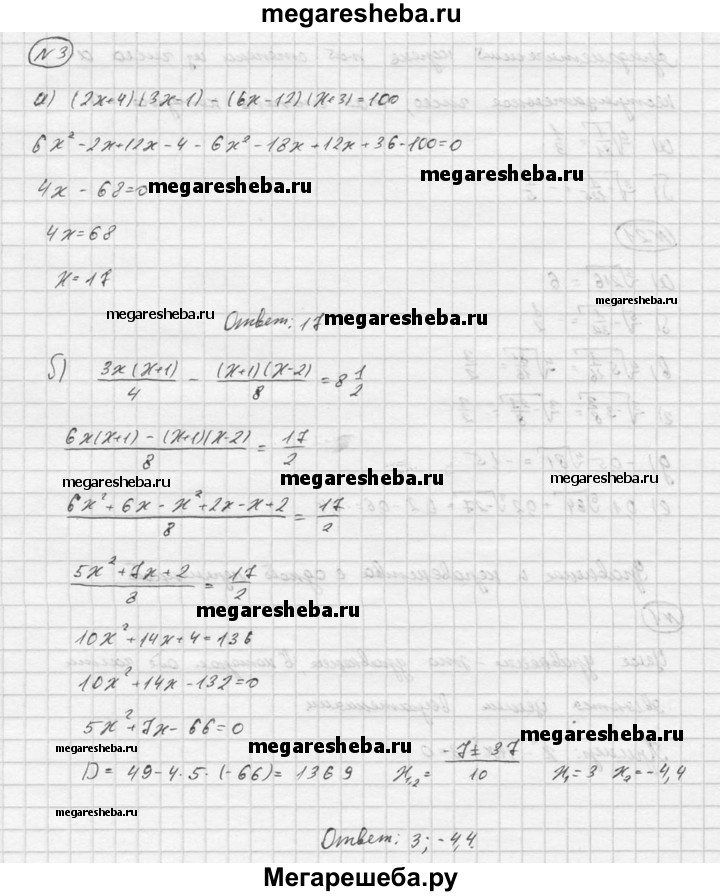 megaresheba.ru
N 3
а) (2x+4)(3x-1) - (6x-12)(x+3)=100
6x² - 2x+12x - 4 - 6x² - 18x + 12x + 36-100=0
4x - 68=0 megaresheba.ru megaresheba.ru
4x=68
x=17
megaresheba.ru
megaresheba.ru Ответ: 17 megaresheba.ru
б) 3x(x+1)/4 - (x+1)(x-2)/8 = 8 1/2
6x(x+1) - (x+1)(x-2)/8 = 17/2
megaresheba.ru megaresheba.ru megaresheba.ru
6x²+6x - x²+2x-x+2/8 = 17/2
5x²+7x+2/8 = 17/2
megaresheba.ru megaresheba.ru
10x²+14x+4=136
10x²+14x-132=0
5x²+7x-66=0
megaresheba.ru megaresheba.ru megaresheba.ru
D = 49-4·5·(-66) = 1369 x1,2 = -7±37/10 x1=3 x2=-4,4
megaresheba.ru
Ответ: 3; -4,4.
Мегарешеба.ру